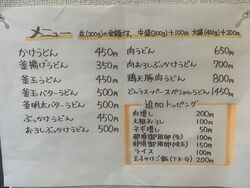 メニュー 並(200g)の金額です。中盛(300g)+100円 大盛(400g)+200円
かけうどん 450円
釜揚げうどん 350円
釜玉うどん 450円
釜玉バターうどん 500円
釜明太バターうどん 500円
ぶっかけうどん 450円
おろしぶっかけうどん 500円
肉うどん 650円
肉おろしぶっかけうどん 700円
鶏天豚肉うどん 800円
どんうスペースペシャルうどん 750円
追加トッピング
肉増し 200円
大根おろし 100円
ネギ増し 50円
那須御用卵(生) 100円
那須御用卵(温) 150円
ライス 100円
玉子かけご飯(T.K.G) 200円